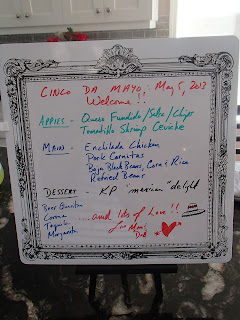 CINCO DA MAYO, May 5, 2013
Welcome!!
APPIES - Queso Fundido/Salsa/Chips
Tomatillo Shrimp Ceviche
MAIN - Enchilada Chicken
Pork Carnitas
Baja Black Beans, Corn & Rice
Refried Beans
DESSERT - KP "mexican" delight
Beer Burritos
Corona
Tequila
Margarita
...and lots of Love!!
From Mom &
Dad